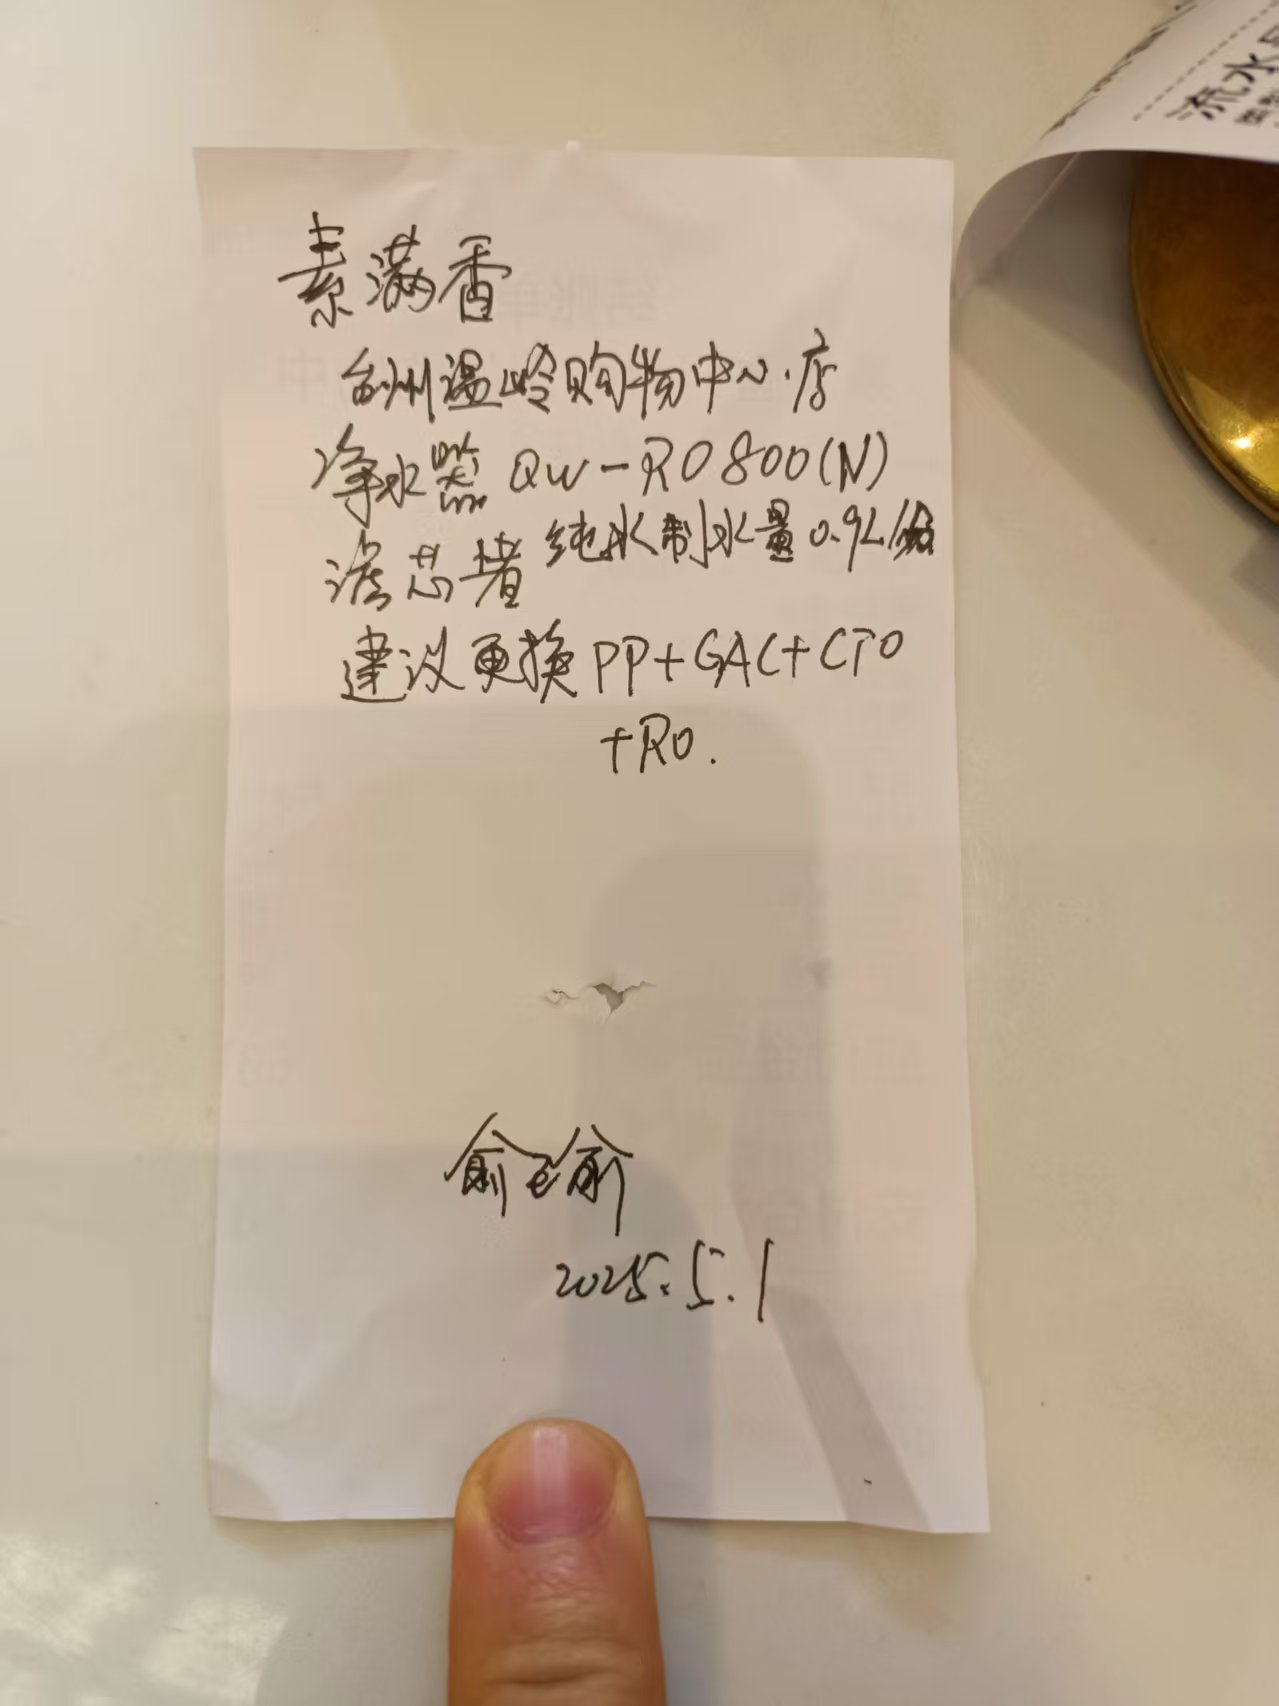 流水
素满香
台州温岭购物中心店
净水器 QW-RO800(N)
滤芯堵 纯水制水量0.9L/分
建议更换PP+GAC+CTO
+RO.
2025.5.1